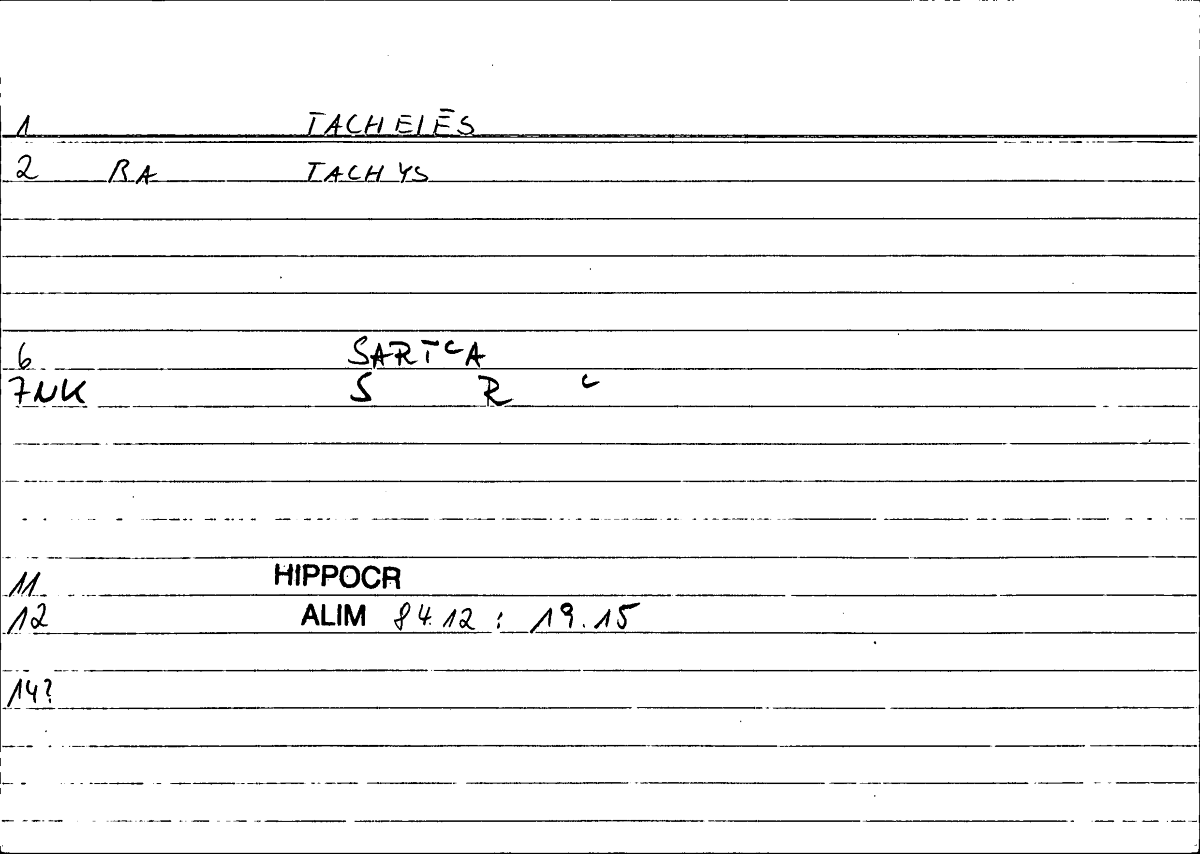 1 TACHEIĒS
2 RA TACHYS
6 SARTᶜA
7NK S R ᶜ
11 HIPPOCR
12 ALIM 84.12 : 19.15
14?